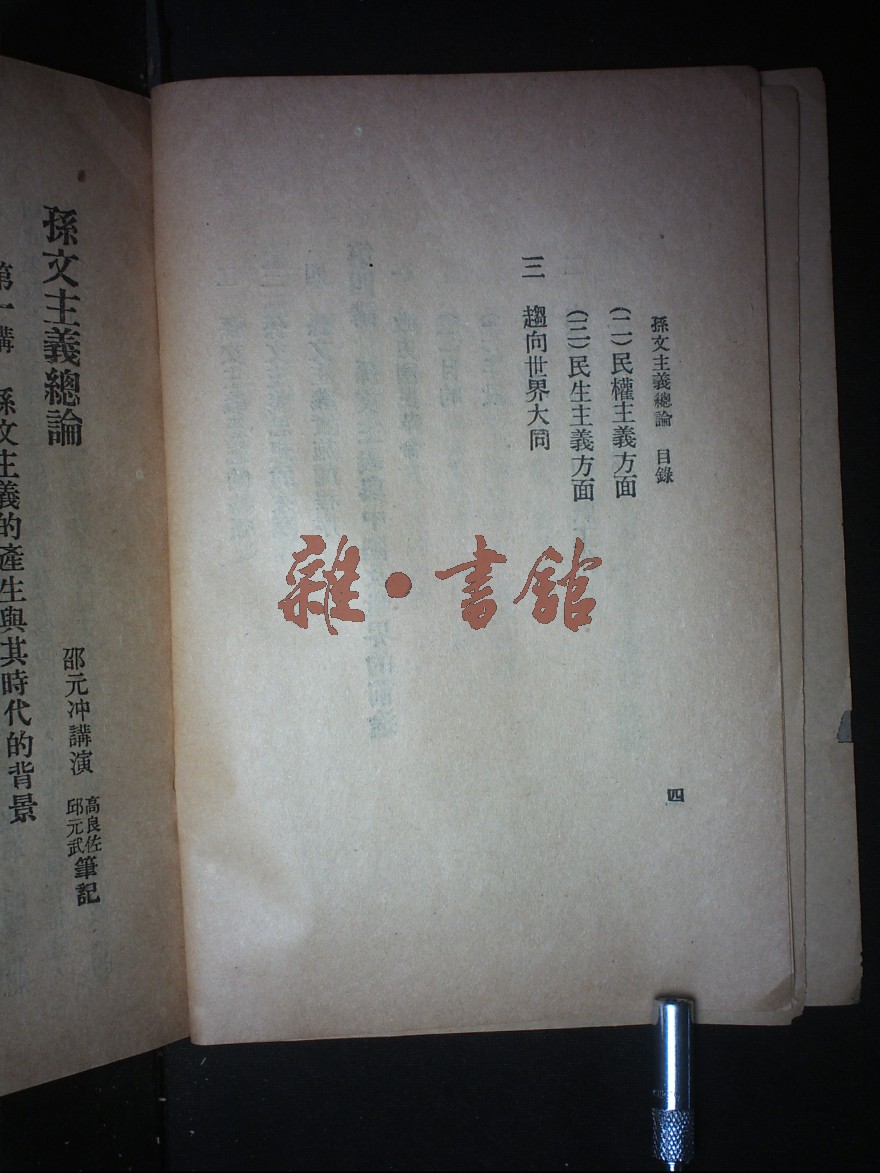 孫文主義總論 目錄
(二)民權主義方面
(三)民生主義方面
三 趨向世界大同
四
雜·書館
孫文主義總論
邵元冲講演 高良佐 邱元武 筆記
第一講 孫文主義的產生與其時代的背景